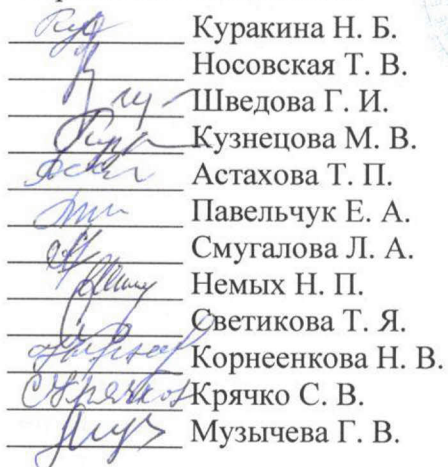 Куракина Н. Б.
Носовская Т. В.
Шведова Г. И.
Кузнецова М. В.
Астахова Т. П.
Павельчук Е. А.
Смугалова Л. А.
Немых Н. П.
Светикова Т. Я.
Корнеенкова Н. В.
Крячко С. В.
Музычева Г. В.